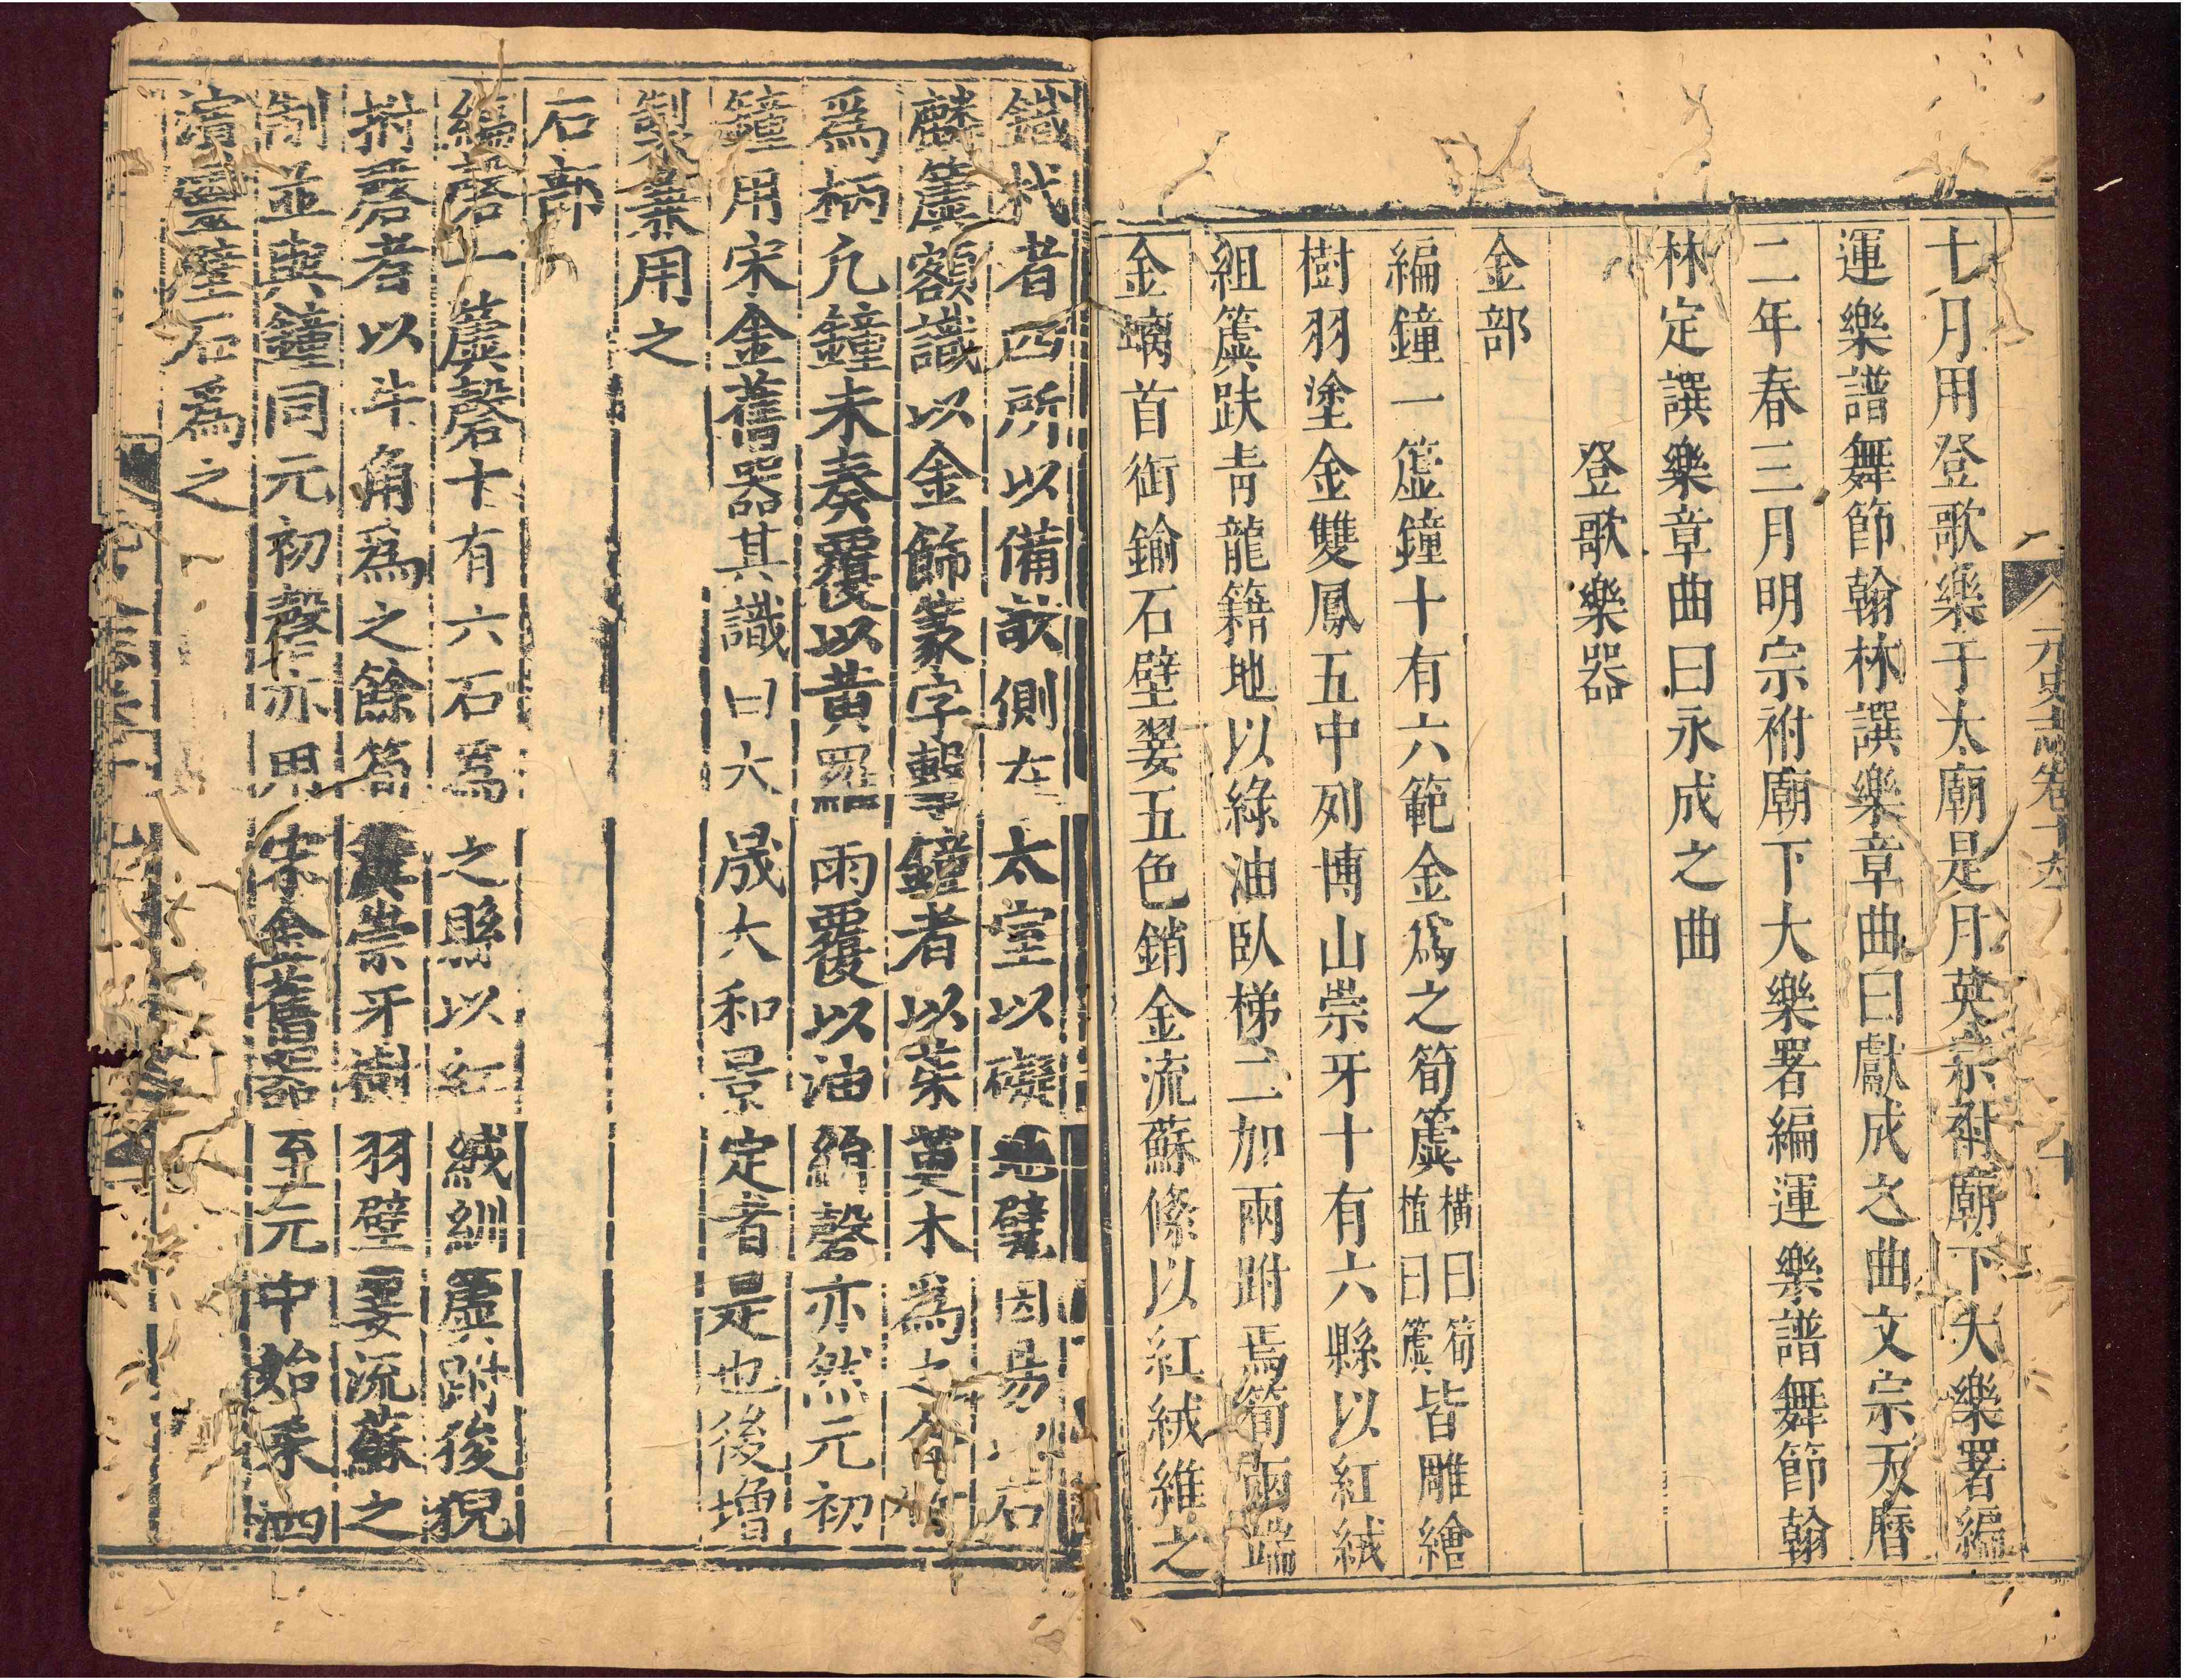 元史志卷十九
七月用登歌樂于太廟是月英宗祔廟下大樂署編
運樂譜舞節翰林譔樂章曲曰獻成之曲文宗天曆
二年春三月明宗祔廟下大樂署編運樂譜舞節翰
林定譔樂章曲曰永成之曲
登歌樂器
金部
編鐘一簴鐘十有六範金爲之筍簴橫曰筍植曰簴皆雕繪
樹羽塗金雙鳳五中列博山崇牙十有六縣以紅絨
組簴趺靑龍籍地以綠油臥梯二加兩跗焉筍兩端
金螭首銜鍮石璧翣五色銷金流蘇絛以紅絨維之
鐵杙者四所以備欹側在太室以礙甓因易以石
麟簴額識以金飾篆字擊鐘者以茱萸木爲之合竹
爲柄凡鐘未奏覆以黃羅雨覆以油絹磬亦然元初
鐘用宋金舊器其識曰大晟大和景定者是也後增
製兼用之
石部
編磬一簴磬十有六石爲之縣以紅絨紃簴跗後猊
拊磬者以牛角爲之餘筍簴崇牙樹羽璧翣流蘇之
制並與鐘同元初磬亦用宋金舊器至元中始采泗
濱靈璧石爲之